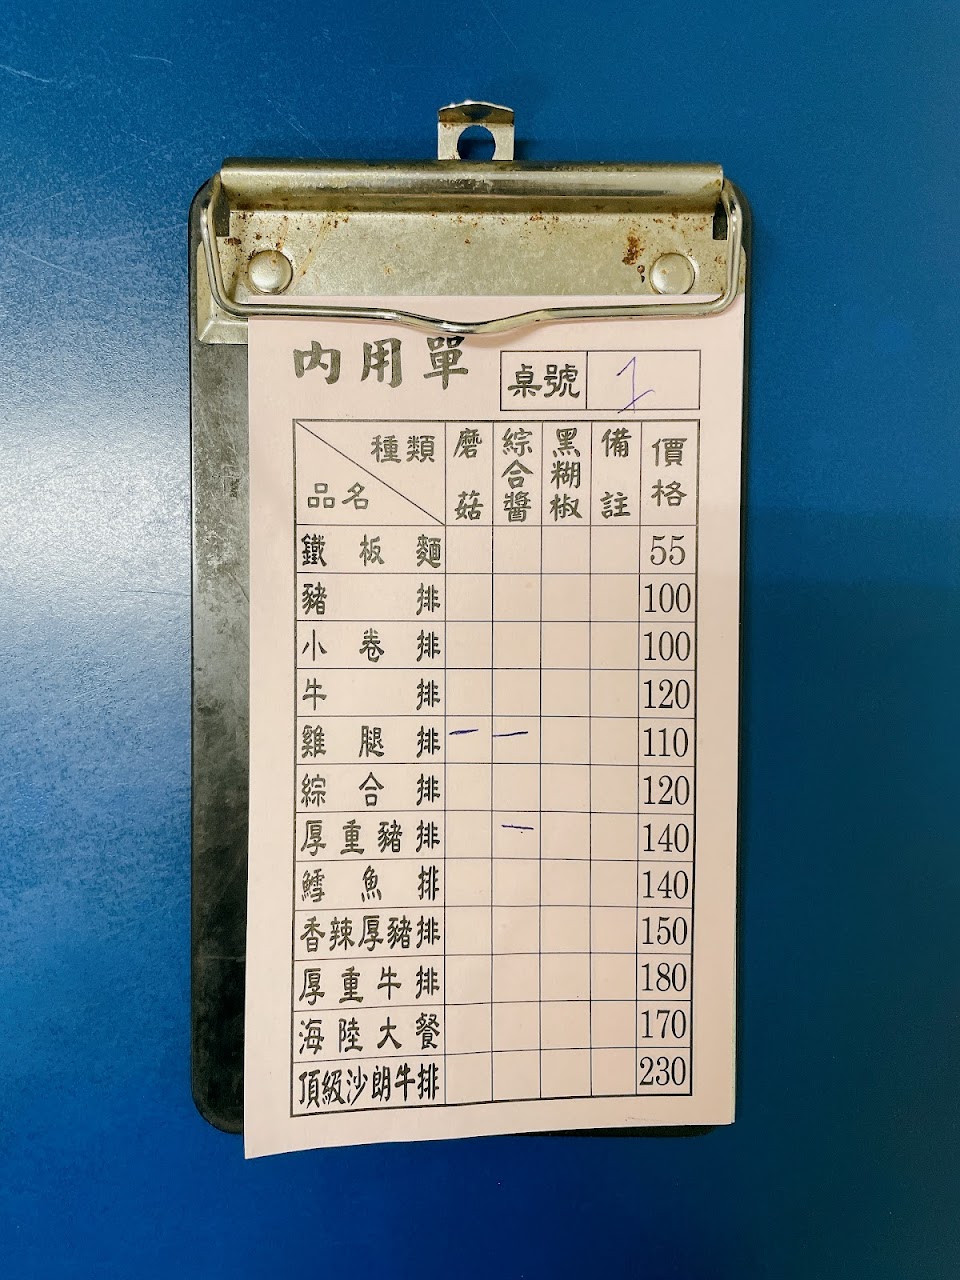 內用單
桌號 1
種類 品名 磨菇 綜合醬 黑糊椒 備註 價格
鐵板麵 55
豬排 100
小卷排 100
牛排 120
雞腿排 一 一 110
綜合排 120
厚重豬排 一 140
鱈魚排 140
香辣厚豬排 150
厚重牛排 180
海陸大餐 170
頂級沙朗牛排 230